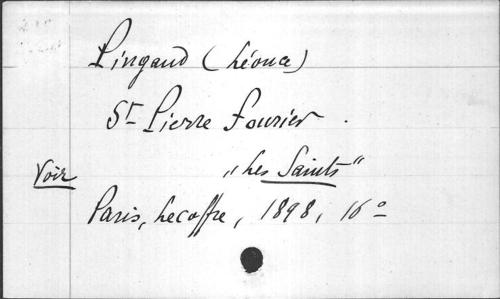 Pingaud (Léonce)
St Pierre Fourier.
Voir "Les Saints"
Paris, Lecoffre, 1898, 16°